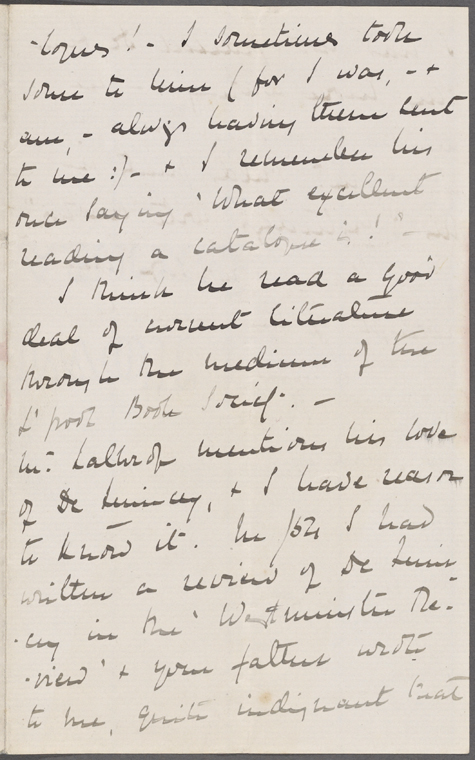 -logues! - I sometimes took
some to him (for I was, - &
am, - always having them sent
to me:) - & I remember his
once saying 'What excellent
reading a catalogue is!' -
I think he read a good
deal of current literature
through the medium of the
L'pool Book Society. -
Mr. Lathrop mentions his love
of De Quincey, & I have reason
to know it. In 1854 I had
written a review of De Quin-
-cey in the 'Westminster Re-
-view' & your father wrote
to me, quite indignant that